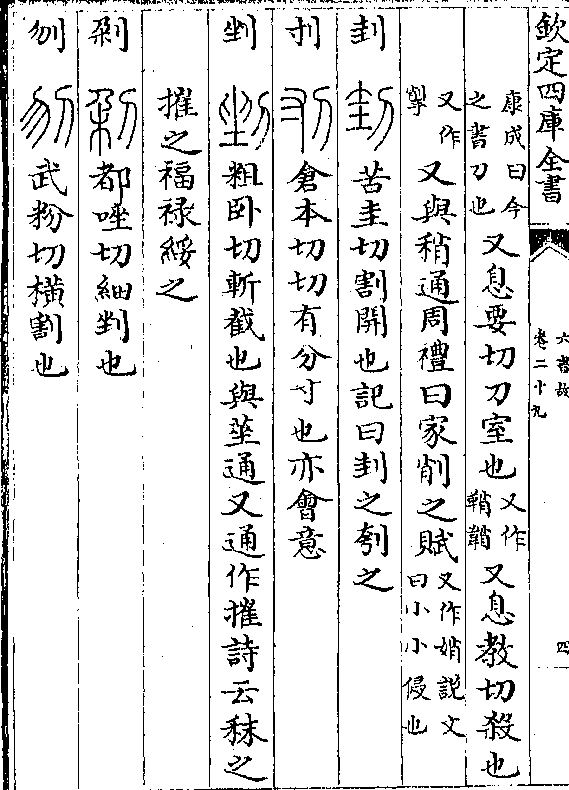 欽定四庫全書
六書故
卷二十九
四
康成曰今之書刀也又息要切刀室也又作鞘韒又息教切殺也
又作揱又與稍通周禮曰家削之賦又作娋說文曰小小侵也
刲苦圭切割開也記曰刲之刳之
刌倉本切切有分寸也亦會意
剉粗卧切斬截也與莝通又通作摧詩云秣之
摧之福禄綏之
剶都唑切細剉也
刎武粉切橫割也